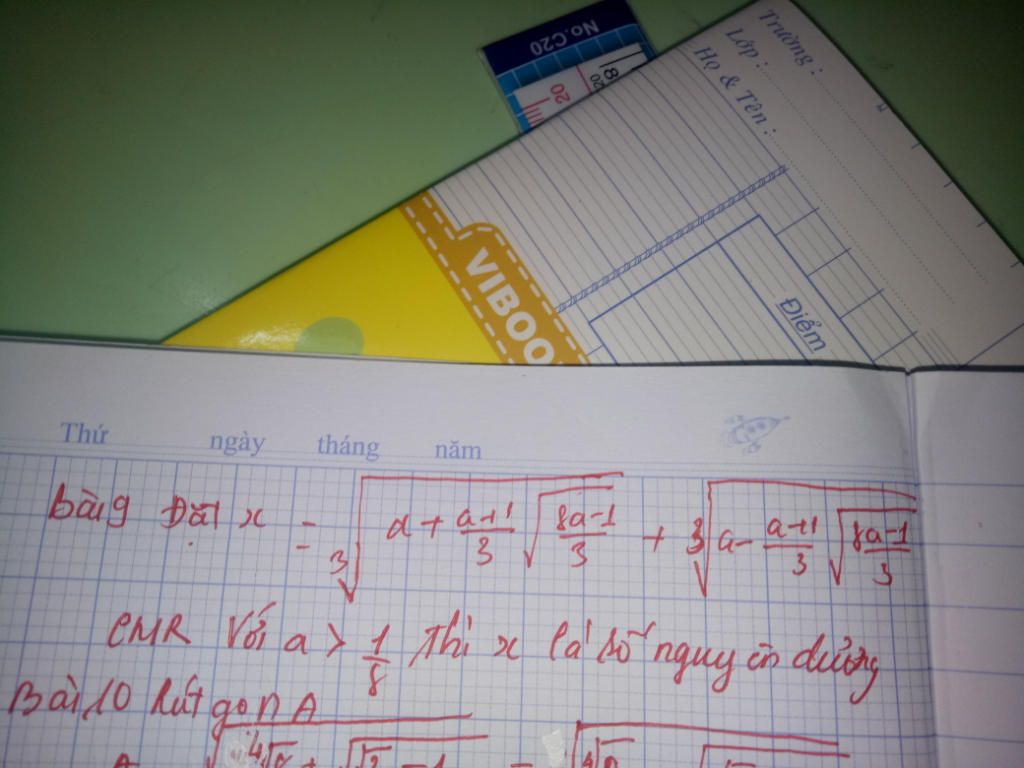 No.C20
8
20
20
Trường :
Lớp :
Họ & Tên :
VIBOO
Điểm
Thứ ngày tháng năm
Bài 9 Đặt x = ∛(a + (a+1)/3 √((8a-1)/3)) + ∛(a - (a+1)/3 √((8a-1)/3))
CMR Với a > 1/8 thì x là số nguyên dương
Bài 10 Rút gọn A